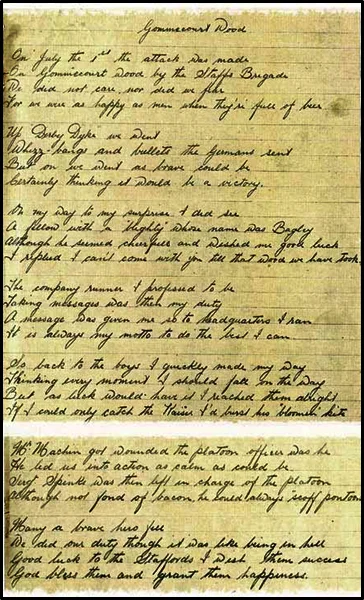 Gommecourt Wood
On July the 1st the attack was made
On Gommecourt Wood by the Staffs Brigade
We did not care nor did we fear
For we were as happy as men when they're full of beer
Up Derby Dyke we went
Whizz-bangs and bullets the Germans sent
But on we went as brave could be
Certainly thinking it would be a victory.
On my way to my surprise I did see
A fellow with a blighty whose name was Bagley
Although he seemed cheerful and wished me good luck
I replied I can't come with you till that wood we have took.
The company runner I professed to be
Taking messages was then my duty
A message was given me so to headquarters I ran
It is always my motto to do the best I can
So back to the boys I quickly made my way
Thinking every moment I should fall on the way
But as luck would have it I reached them alright
If I could only catch the Kaiser I'd burst his bloomin' kite
Mr Machin got wounded the platoon officer was he
He led us into action as calm as could be
Sergt Spenks was then left in charge of the platoon
Although not fond of bacon, he could always scoff
Many a brave hero fell
We did our duty though it was like being in hell
Good luck to the Staffords I wish them success
God bless them and grant them happiness.